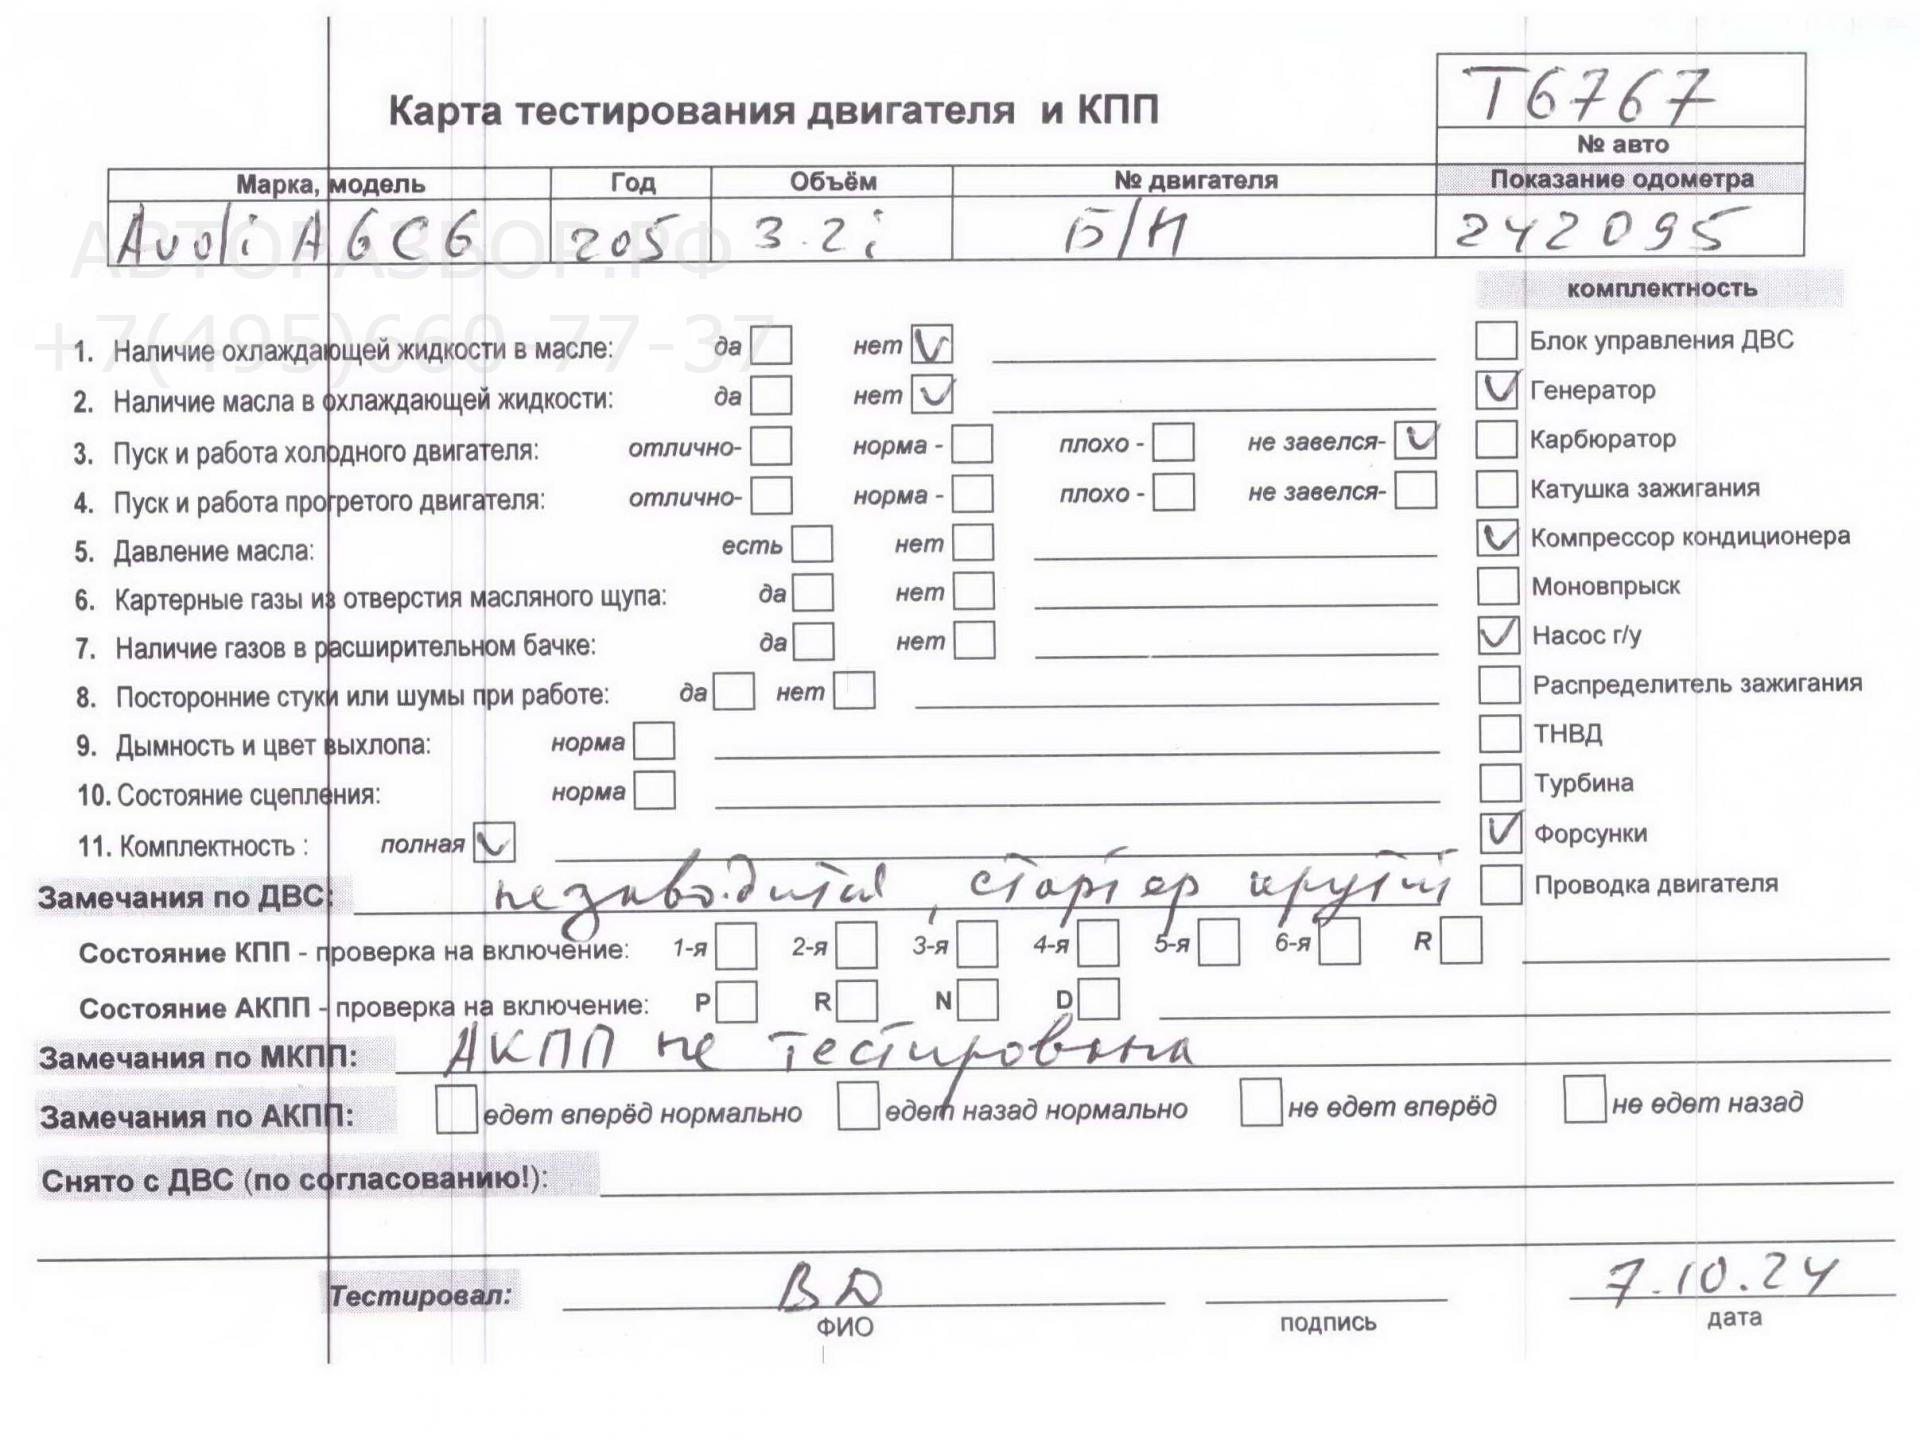 Карта тестирования двигателя и КПП
Т6767
№ авто
Марка, модель Год Объём № двигателя Показание одометра
Audi A6C6 205 3.2i Б/Н 242095
АВТОРАЗБОР.РФ
+7(495)660-77-37
комплектность
1. Наличие охлаждающей жидкости в масле: да нет
Блок управления ДВС
2. Наличие масла в охлаждающей жидкости: да нет
Генератор
3. Пуск и работа холодного двигателя: отлично- норма - плохо - не завелся-
Карбюратор
4. Пуск и работа прогретого двигателя: отлично- норма - плохо - не завелся-
Катушка зажигания
5. Давление масла: есть нет
Компрессор кондиционера
6. Картерные газы из отверстия масляного щупа: да нет
Моновпрыск
7. Наличие газов в расширительном бачке: да нет
Насос г/у
8. Посторонние стуки или шумы при работе: да нет
Распределитель зажигания
9. Дымность и цвет выхлопа: норма
ТНВД
10. Состояние сцепления: норма
Турбина
11. Комплектность : полная
Форсунки
Замечания по ДВС: незаводится, стартер крутит
Проводка двигателя
Состояние КПП - проверка на включение: 1-я 2-я 3-я 4-я 5-я 6-я R
Состояние АКПП - проверка на включение: P R N D
Замечания по МКПП: АКПП не тестирована
Замечания по АКПП: едет вперёд нормально едет назад нормально не едет вперёд не едет назад
Снято с ДВС (по согласованию!):
Тестировал: ВД 7.10.24
ФИО подпись дата